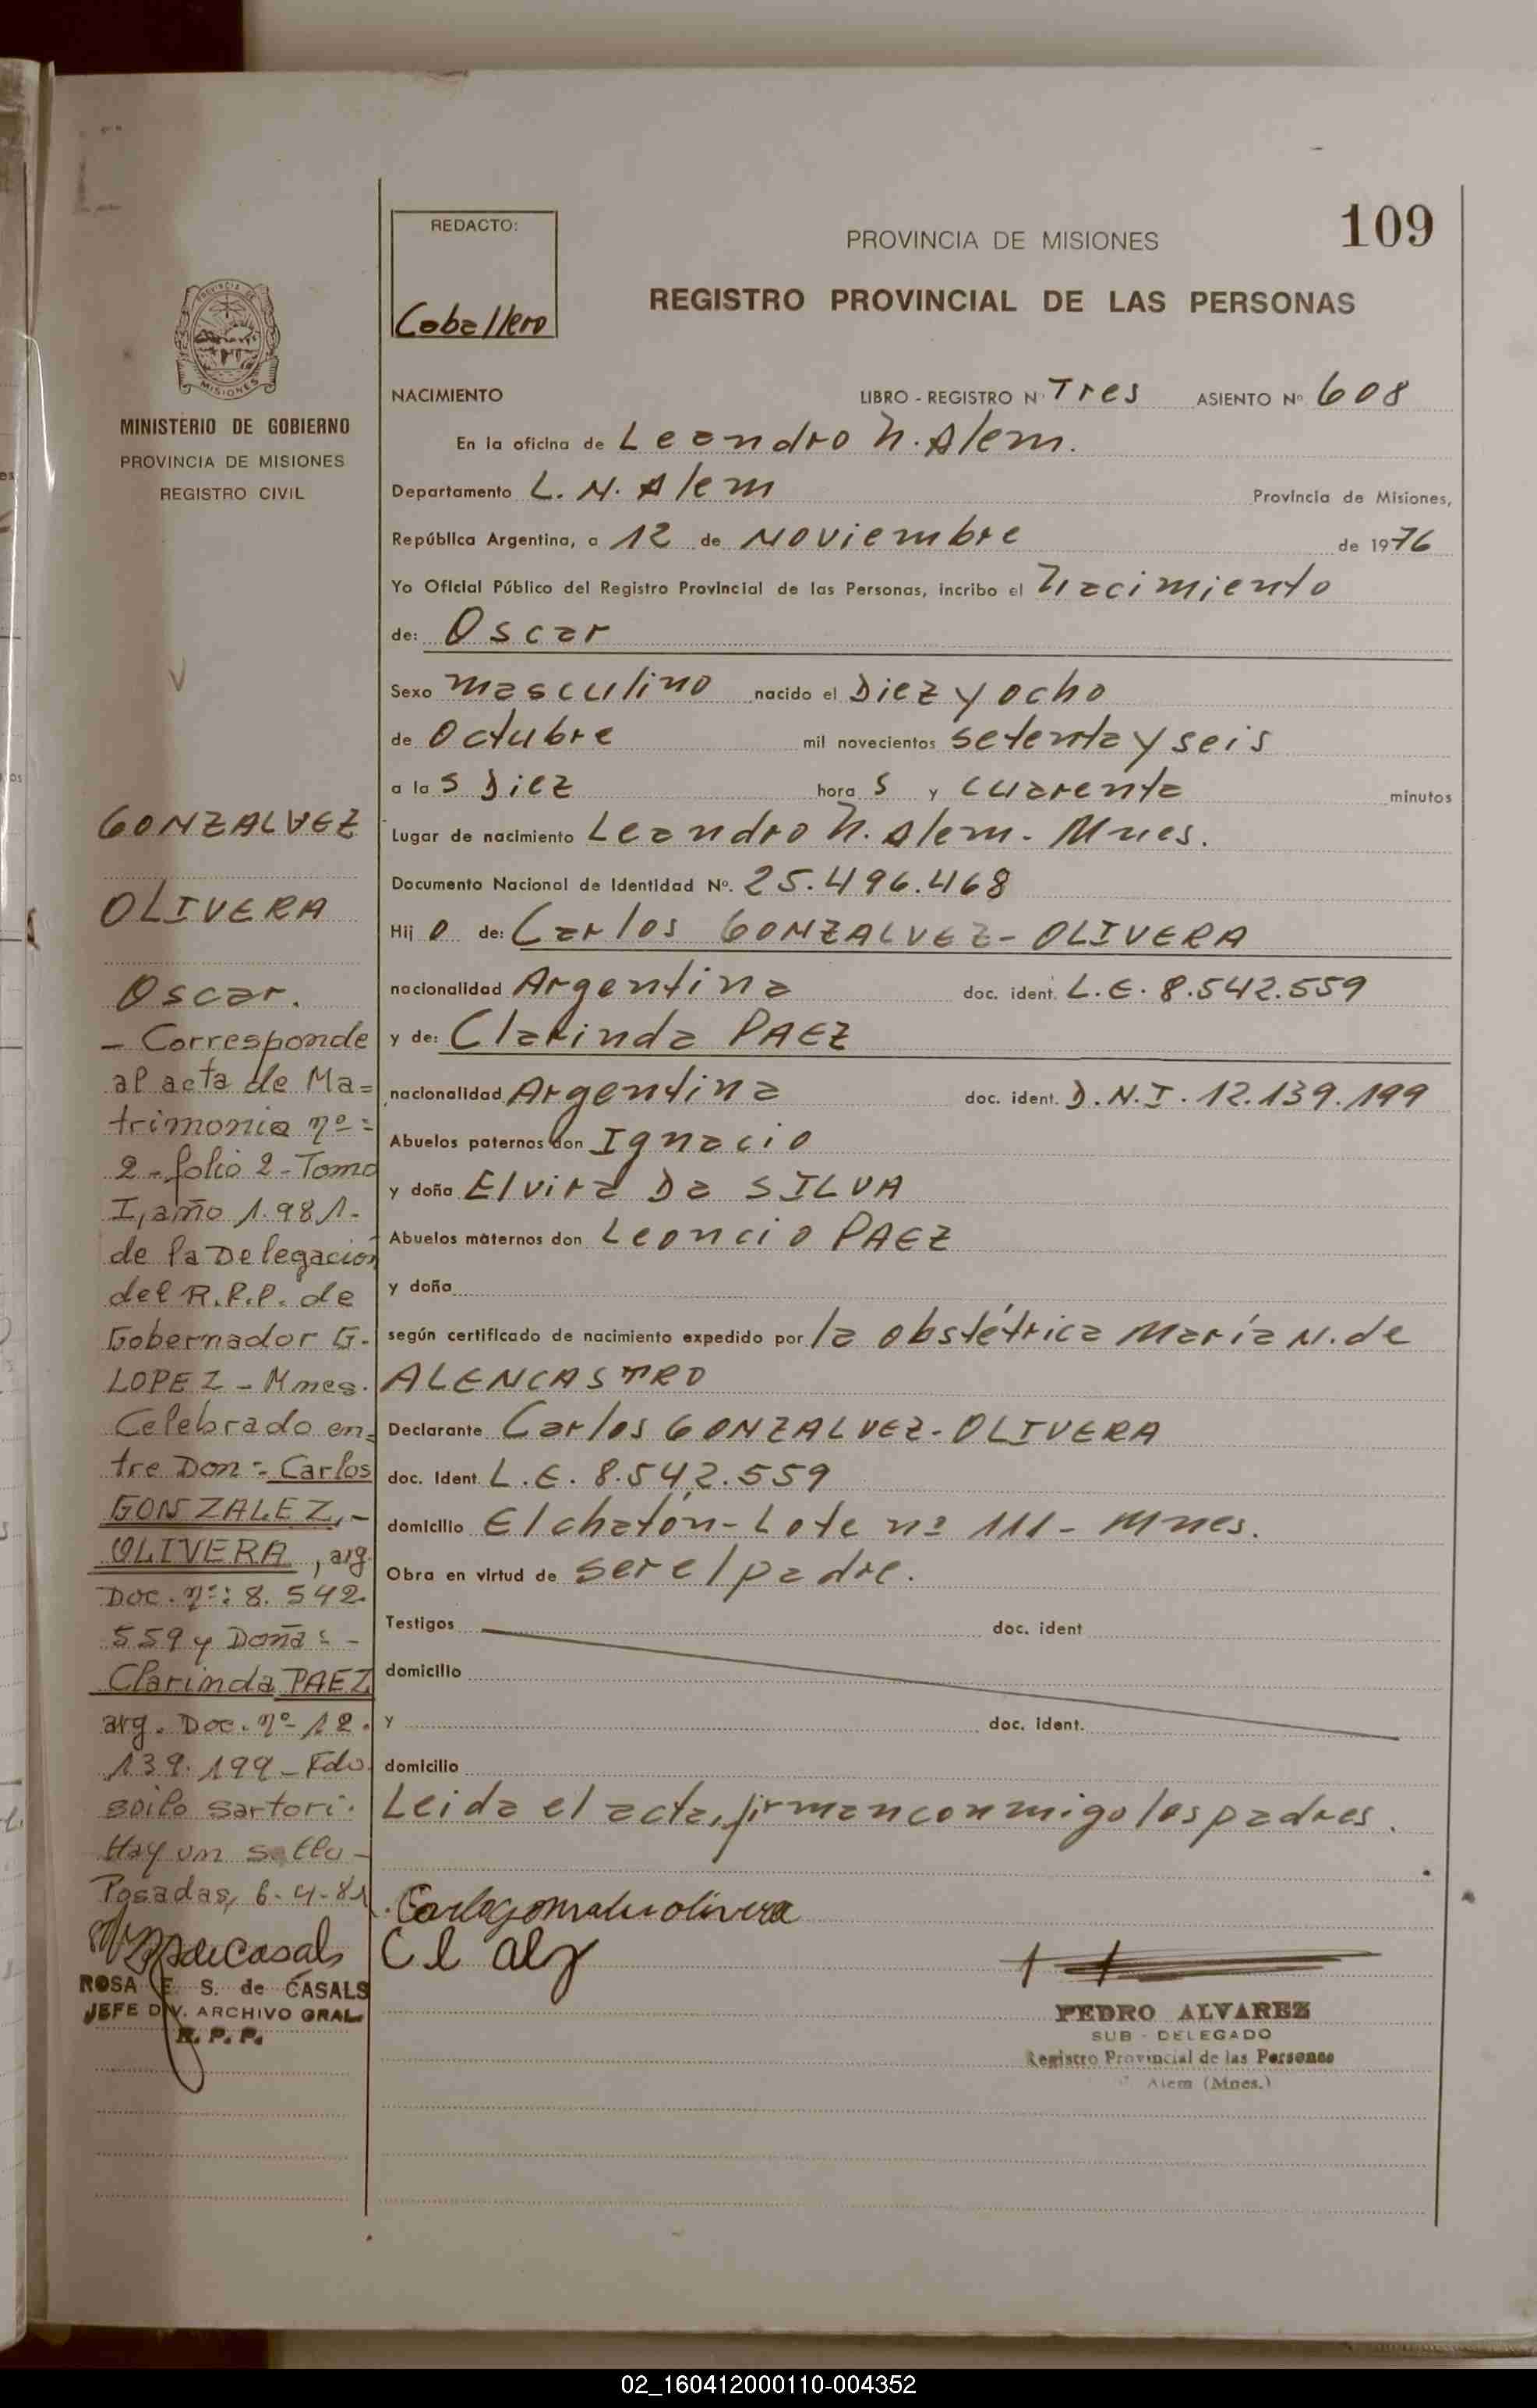 109
REDACTO:
Caballero
PROVINCIA DE MISIONES
REGISTRO PROVINCIAL DE LAS PERSONAS
PROVINCIA DE
MISIONES
MINISTERIO DE GOBIERNO
PROVINCIA DE MISIONES
REGISTRO CIVIL
NACIMIENTO LIBRO - REGISTRO Nº Tres ASIENTO Nº 608
En la oficina de Leandro N. Alem.
Departamento L. N. Alem Provincia de Misiones,
República Argentina, a 12 de Noviembre de 1976
Yo Oficial Público del Registro Provincial de las Personas, incribo el Nacimiento
de: Oscar
Sexo masculino nacido el Diez y ocho
de Octubre mil novecientos setenta y seis
a las Diez horas y cuarenta minutos
Lugar de nacimiento Leandro N. Alem - Mnes.
Documento Nacional de Identidad Nº. 25.496.468
Hijo de: Carlos GONZALVEZ - OLIVERA
nacionalidad Argentina doc. ident. L.E. 8.542.559
y de: Clarinda PAEZ
nacionalidad Argentina doc. ident. D.N.I. 12.139.199
Abuelos paternos don Ignacio
y doña Elvira Da SILVA
Abuelos maternos don Leoncio PAEZ
y doña
según certificado de nacimiento expedido por la obstétrica María N. de
ALENCASTRO
Declarante Carlos GONZALVEZ - OLIVERA
doc. Ident. L.E. 8.542.559
domicilio El chatón - Lote nº 111 - Mnes.
Obra en virtud de ser el padre.
Testigos doc. ident
domicilio
y doc. ident.
domicilio
Leida el acta, firman conmigo los padres.
PEDRO ALVAREZ
SUB - DELEGADO
Registro Provincial de las Personas
Alem (Mnes.)
GONZALVEZ
OLIVERA
Oscar.
- Corresponde
al acta de Ma=
trimonio nº=
2 - folio 2 - Tomo
I, año 1.981-
de la Delegación
del R.P.P. de
Gobernador G.
LOPEZ - Mnes.
Celebrado en=
tre Don :- Carlos
GONZALEZ, -
OLIVERA, arg.
Doc. nº: 8.542.
559 y Doña : -
Clarinda PAEZ
arg. Doc. nº 12.
139.199 - Fdo.
soilo sartori.
Hay un sello -
Posadas, 6-4-81
ROSA E. S. de CASALS
JEFE DIV. ARCHIVO GRAL.
R. P. P.
02_160412000110-004352